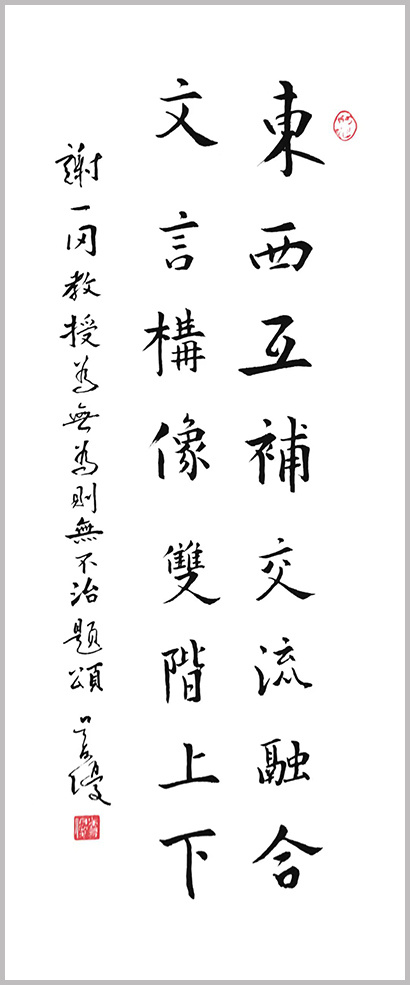 東西互補交流融合
文言構像雙階上下
謝一冈教授為無為則無不治題頌